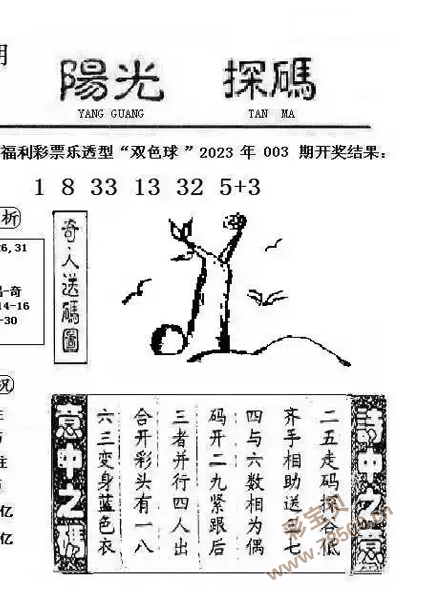 期
陽光 探碼
YANG GUANG TAN MA
福利彩票乐透型“双色球”2023 年 003 期开奖结果：
1 8 33 13 32 5+3
析
26,31
奇
14-16
-30
奇人送碼圖
况
主
亿
亿
詩中之密
二五走码探谷低
齐手相助送三七
四与六数相为偶
码开二九紧跟后
三者并行四人出
合开彩头有一八
六三变身蓝色衣
意中之碼
彩宝贝
www.78500.cn